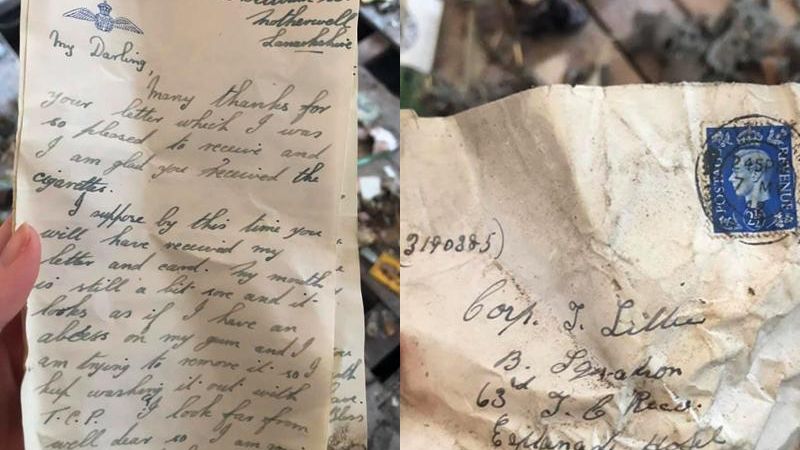 Motherwell
Lanarkshire
My Darling,
Many thanks for
your letter which I was
so pleased to receive and
I am glad you received the
cigarettes.
I suppose by this time you
will have received my
letter and card. My mouth
is still a bit sore and it
looks as if I have an
abcess on my gum and I
am trying to remove it so I
keep washing it out with
T.C.P. I look far from
well dear so I am
POSTAGE
REVENUE
2½
24 SP
7 M
3190385)
Corp. J. Lillie
B. Squadron
63rd T C Recc.
Hotel